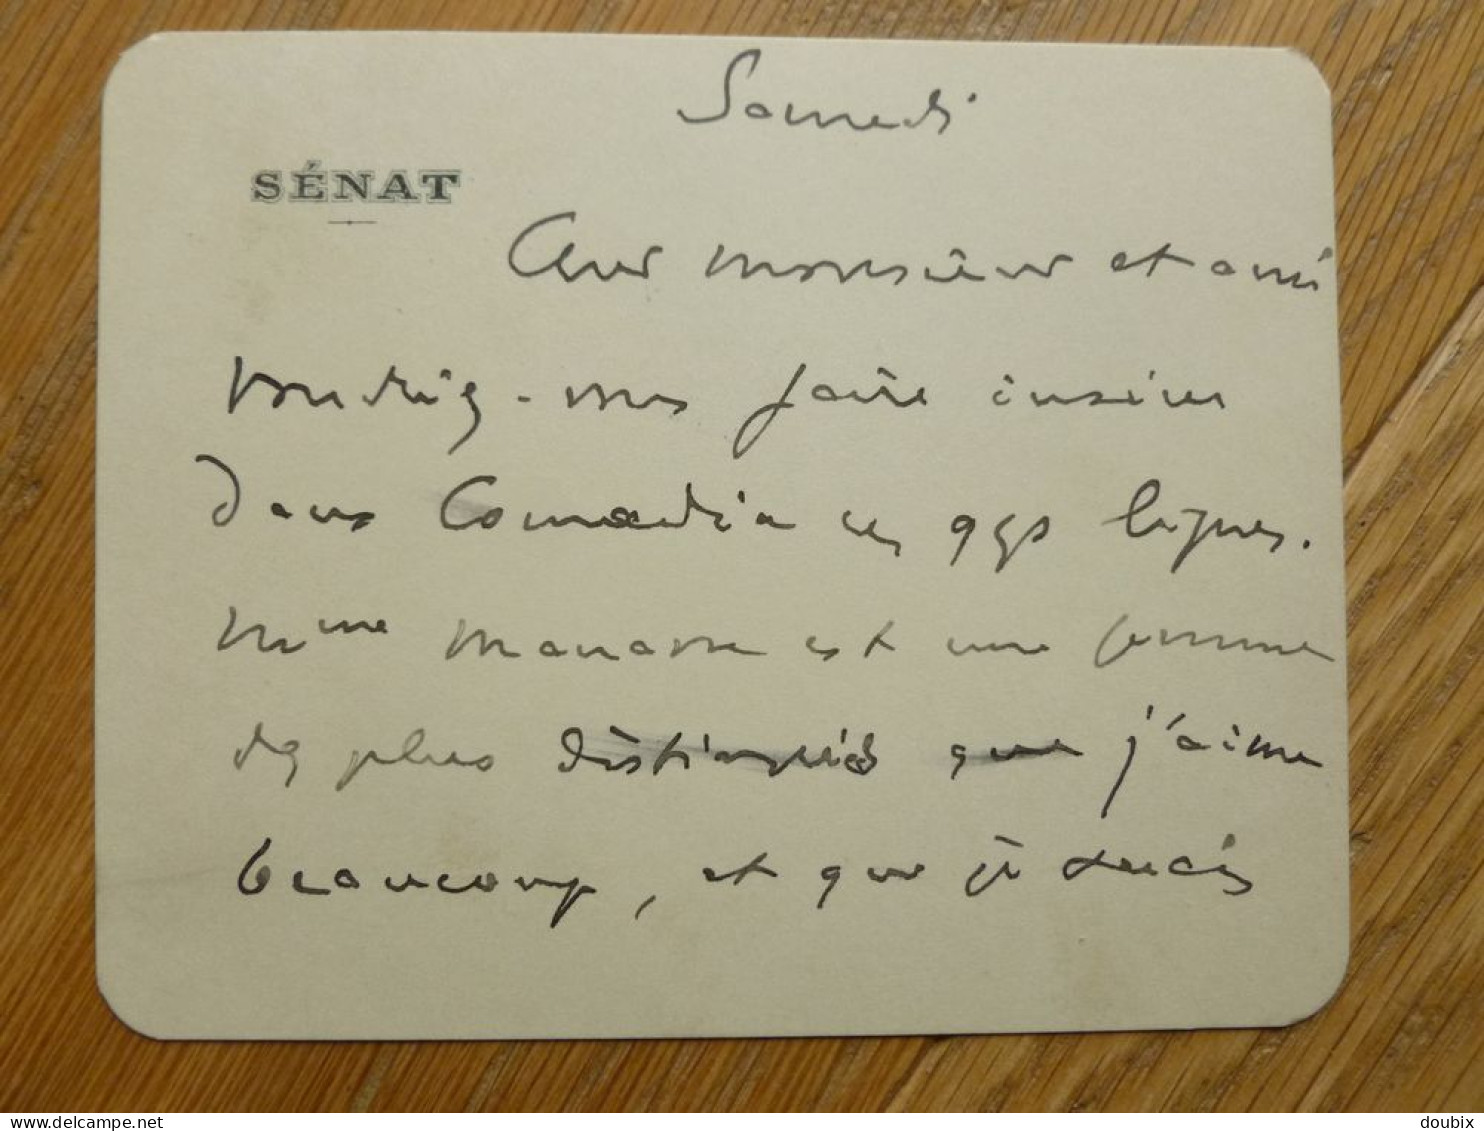 Samedi
SÉNAT
Cher monsieur et ami
voudriez-vous faire insérer
dans Comœdia ces qqs lignes.
Mme Manasse est une femme
des plus distinguées que j'aime
beaucoup, et que je
delcampe.net
doubix